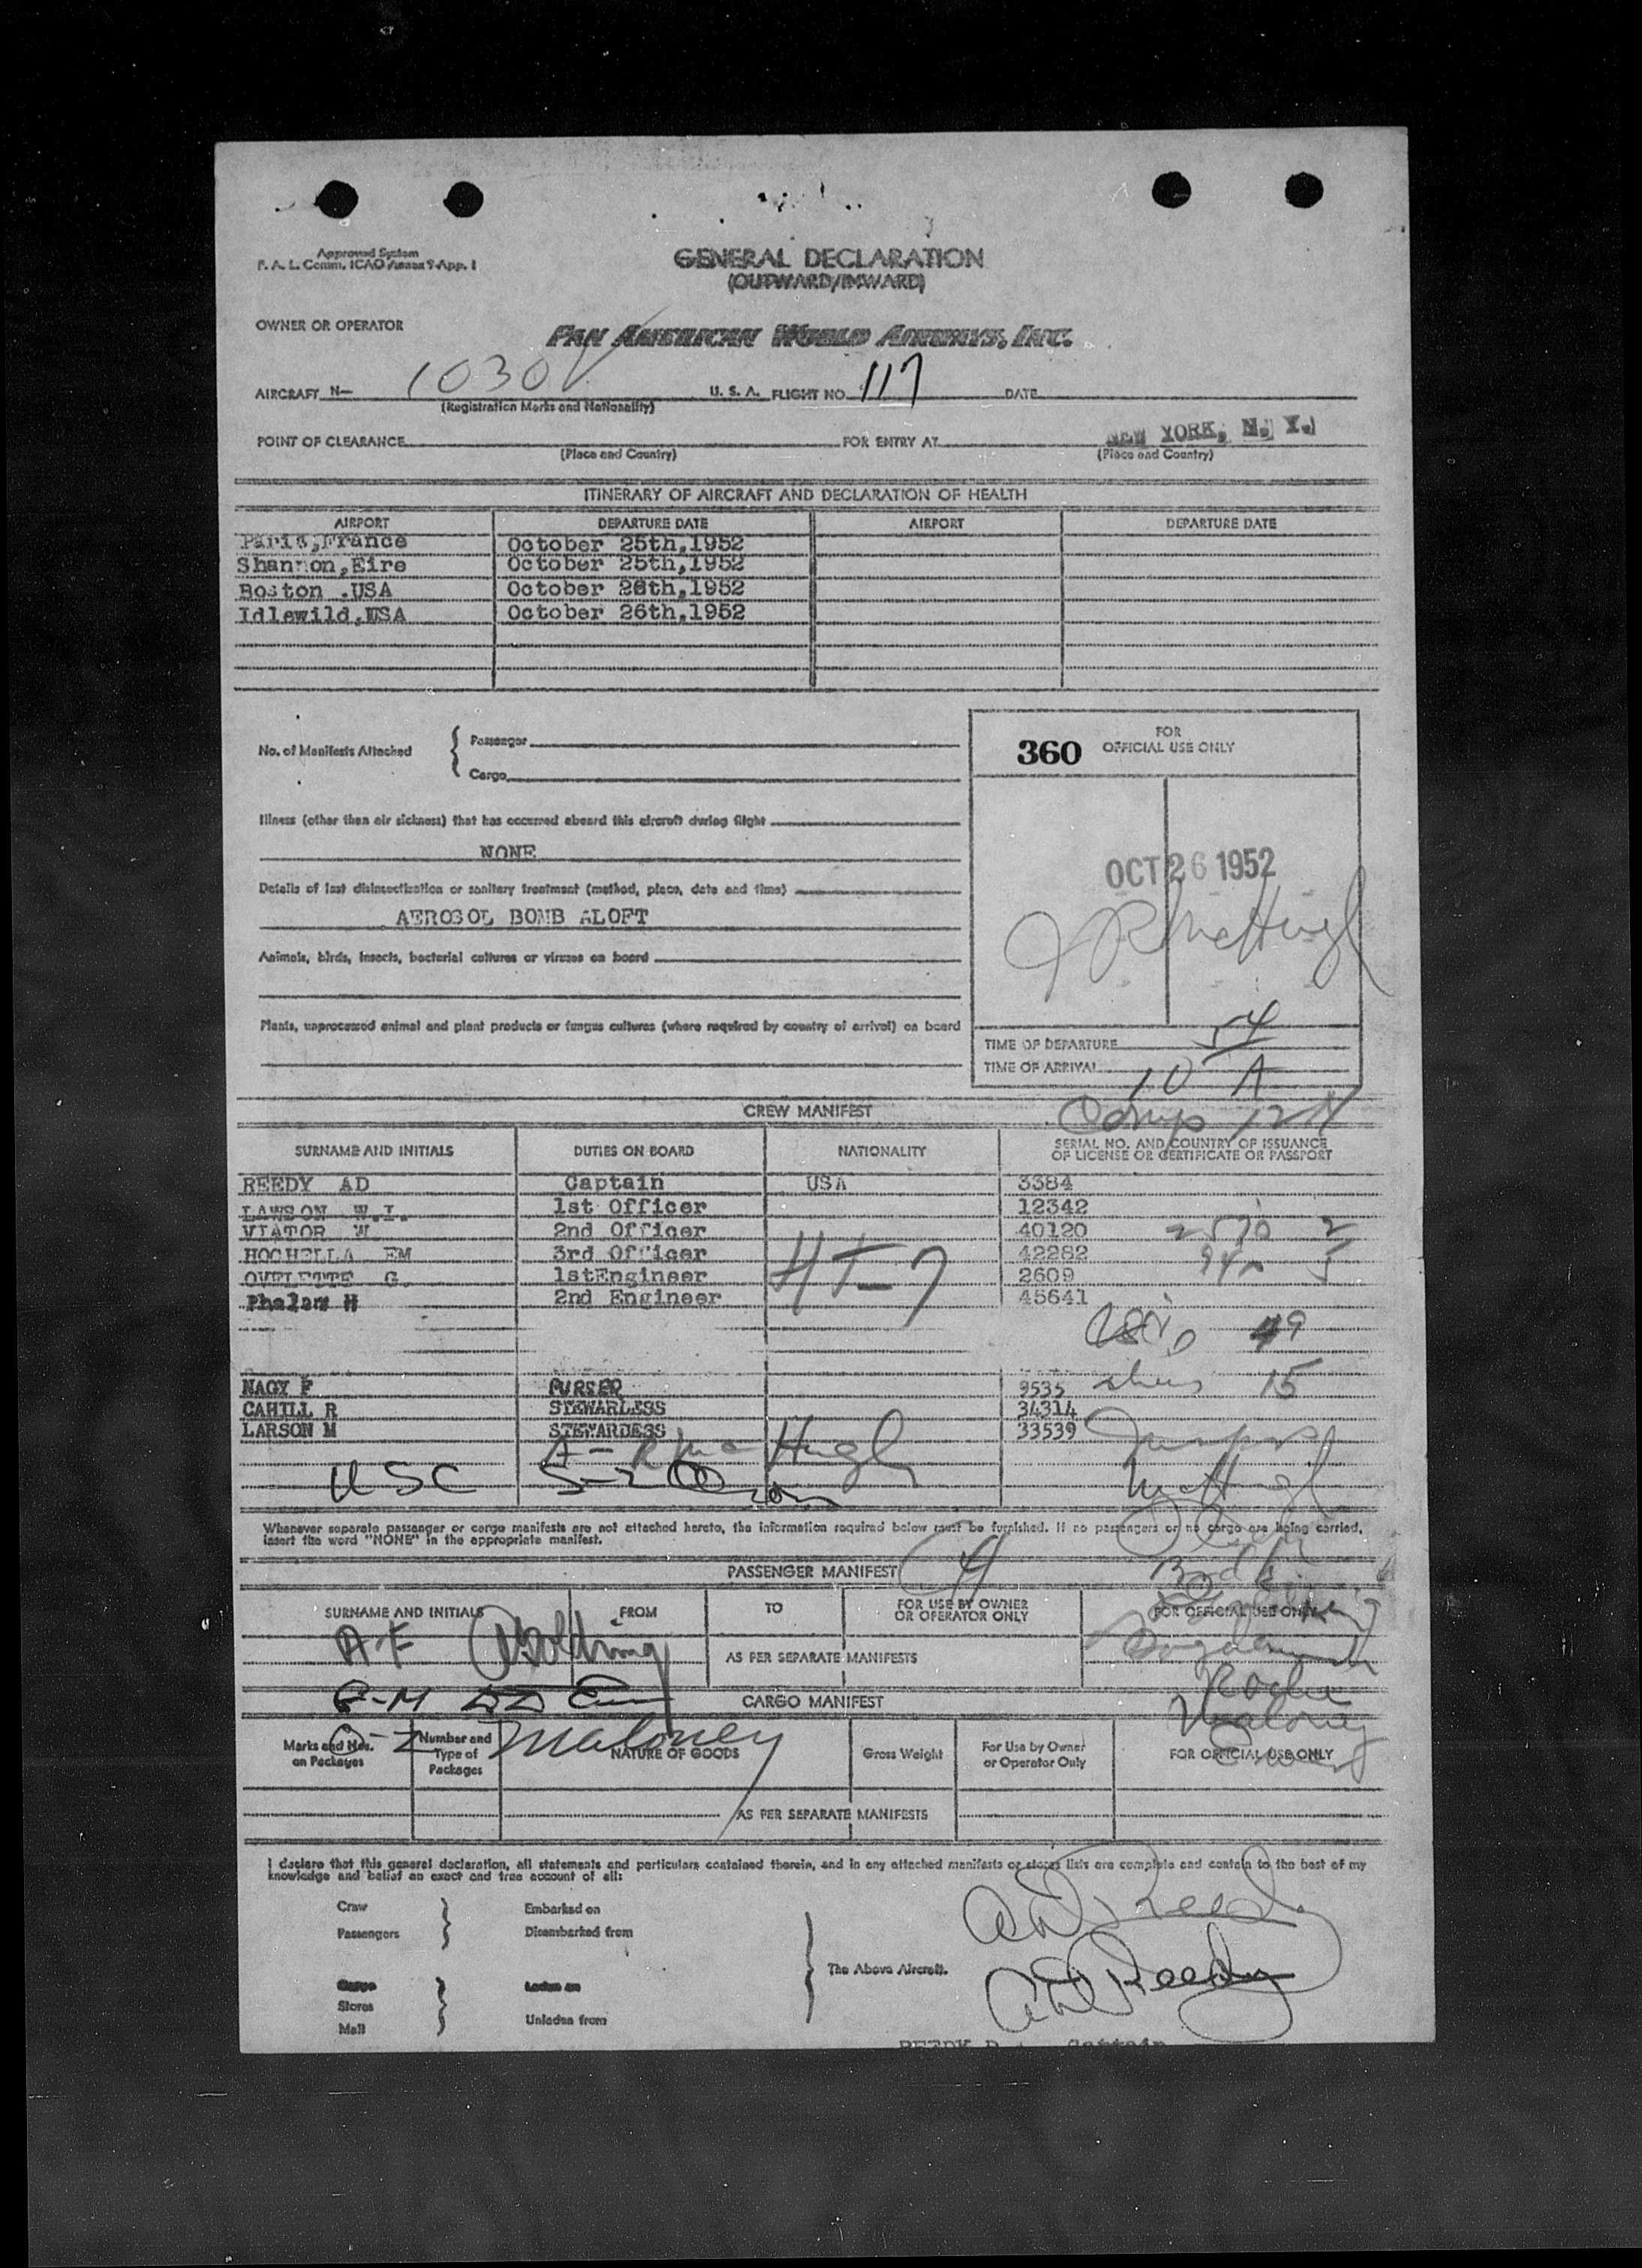 Approved System
F. A. L. Comm. ICAO Annex 9 App. 1
GENERAL DECLARATION
(OUTWARD/INWARD)
OWNER OR OPERATOR
PAN AMERICAN WORLD AIRWAYS, INC.
AIRCRAFT N— 1030V U. S. A. FLIGHT NO 117 DATE
(Registration Marks and Nationality)
POINT OF CLEARANCE FOR ENTRY AT NEW YORK, N. Y.
(Place and Country) (Place and Country)
ITINERARY OF AIRCRAFT AND DECLARATION OF HEALTH
AIRPORT DEPARTURE DATE AIRPORT DEPARTURE DATE
Paris,France October 25th,1952
Shannon,Eire October 25th,1952
Boston .USA October 26th,1952
Idlewild,USA October 26th,1952
No. of Manifests Attached { Passenger
Cargo
360 FOR OFFICIAL USE ONLY
Illness (other than air sickness) that has occurred aboard this aircraft during flight
NONE
Details of last disinsectization or sanitary treatment (method, place, date and time)
AEROSOL BOMB ALOFT
OCT 26 1952
JR McHugh
Animals, birds, insects, bacterial cultures or viruses on board
Plants, unprocessed animal and plant products or fungus cultures (where required by country of arrival) on board
TIME OF DEPARTURE 54
TIME OF ARRIVAL 10 A
Comp 12
CREW MANIFEST
SURNAME AND INITIALS DUTIES ON BOARD NATIONALITY SERIAL NO. AND COUNTRY OF ISSUANCE
OF LICENSE OR CERTIFICATE OR PASSPORT
REEDY AD Captain USA 3384
LAWSON W.I. 1st Officer 12342
VIATOR W 2nd Officer 40120
HOCHELLA EM 3rd Officer 42282
OVELETTE G. 1stEngineer 2609
Phalan H 2nd Engineer 45641
HT-7
49
NAGY F PURSER 9535
15
CAHILL R STEWARLESS 34314
LARSON M STEWARDESS 33539
A- R McHugh
USC S-Z Olson
McHugh
Whenever separate passenger or cargo manifests are not attached hereto, the information required below must be furnished. If no passengers or no cargo are being carried,
insert the word "NONE" in the appropriate manifest.
PASSENGER MANIFEST
SURNAME AND INITIALS FROM TO FOR USE BY OWNER
OR OPERATOR ONLY FOR OFFICIAL USE ONLY
A-F Golding
AS PER SEPARATE MANIFESTS
Roche
Maloney
CARGO MANIFEST
Maloney
Marks and Nos.
on Packages Number and
Type of
Packages NATURE OF GOODS Gross Weight For Use by Owner
or Operator Only FOR OFFICIAL USE ONLY
AS PER SEPARATE MANIFESTS
I declare that this general declaration, all statements and particulars contained therein, and in any attached manifests or stores lists are complete and contain to the best of my
knowledge and belief an exact and true account of all:
Crew Embarked on
Passengers Disembarked from
The Above Aircraft.
Cargo Laden on
Stores
Mail Unladen from
AD Reedy
AD Reedy